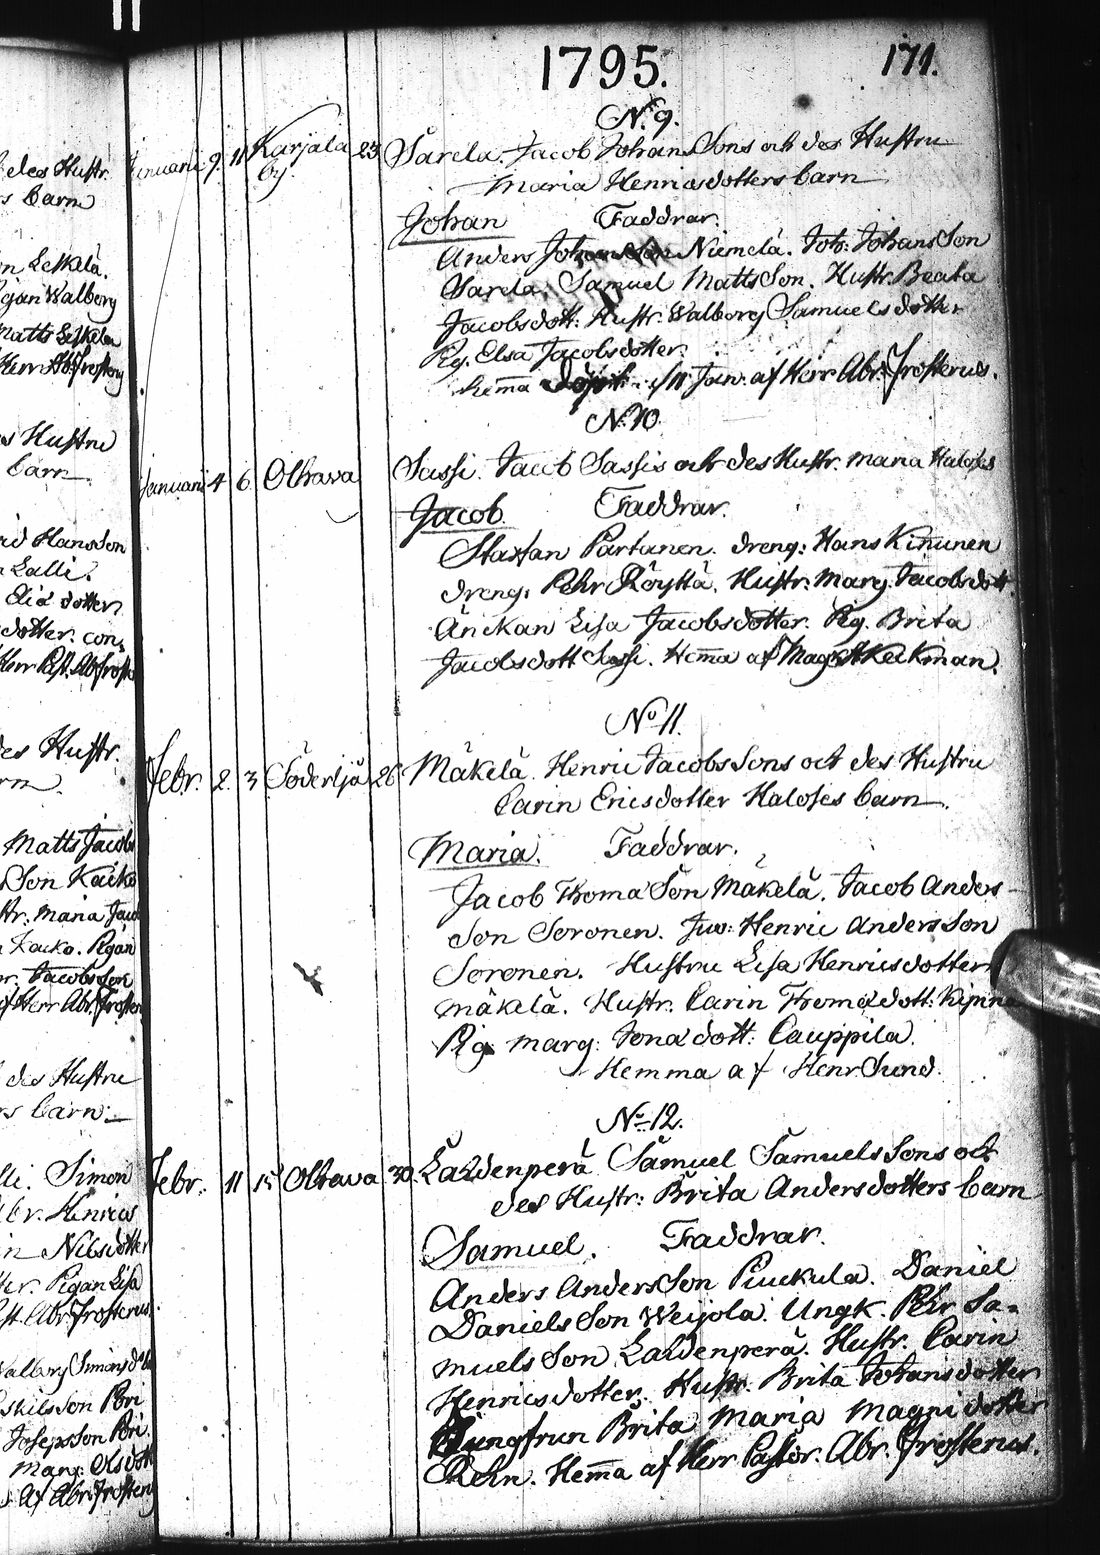 des Hustr.
s barn
n Leskelä.
igan Walborg
Matts Leskelä
Herr Ab. Frosterus
s Hustru
barn
rid Hansson
Lalli.
Eliä dotter
dotter. con.
Herr Past. Ab. Frost
des Hustr.
rn.
Matts Jacobs
Son Kaiko
str. Maria Jac
Kaiko. Pigan
Jacobs Son
af Herr Abr. Froster
des Hustru
rs barn
lli. Simon
br. Hinrics
in Nilsdotter
ter. Pigan Lisa
st. Abr. Frosterus.
Walborg Simonsdott
Eskils Son Pori
Josephs Son Pori.
Marg: Olsdott
Af Abr. Frosterus
1795. 171.
No. 9.
Januarii 9. 11 Karjala by. 23 Sarela. Jacob Johans Sons och des Hustru
Maria Henricsdotters barn
Johan Faddrar.
Anders Johans Son Niemelä. Joh: Johans Son
Sarela. Samuel Matts Son. Hustr. Beata
Jacobsdott: Hustr. Walborg Samuelsdotter
Pig. Elsa Jacobsdotter.
hem̄a döpt d. 11 Jan. af Herr Abr. Frosterus.
No. 10.
Januarii 4 6 Olhava Sassi. Jacob Sassis och des Hustr. Maria Haloses
Jacob. Faddrar.
Staffan Partanen. dreng: Hans Kinunen
dreng: Pehr Röyttä. Hustr. Marg. Jacobsdott.
Änckan Lisa Jacobsdotter. Pig. Brita
Jacobsdott Sassi. Hem̄a af Mag. Keckman.
No 11.
Febr. 2. 3 Söderljå 26 Mäkelä. Henric Jacobs Sons och des Hustru
Carin Ericsdotter Haloses barn
Maria. Faddrar.
Jacob Thoma Son Mäkelä. Jacob Anders-
Son Soronen. Juv: Henric Anders Son
Soronen. Hustru Lisa Henricsdotter
Mäkelä. Hustr. Carin Thomadott:
Pig. Marg: Jonä dott: Cauppila.
Hemma af Henr. Sund.
No. 12.
Febr. 11 15 Olhava 30. Laidenperä Samuel Samuels Sons och
des Hustr: Brita Andersdotters barn
Samuel. Faddrar.
Anders Anders Son Piuckula. Daniel
Daniels Son Weijola. Ungk. Pehr Sa-
muels Son Laidenperä. Hustr. Carin
Henricsdotter. Hustr. Brita Johansdotter
Jungfrun Brita Maria Magni dotter
Rehn. Hem̄a af Herr Pastor. Abr. Frosterus.